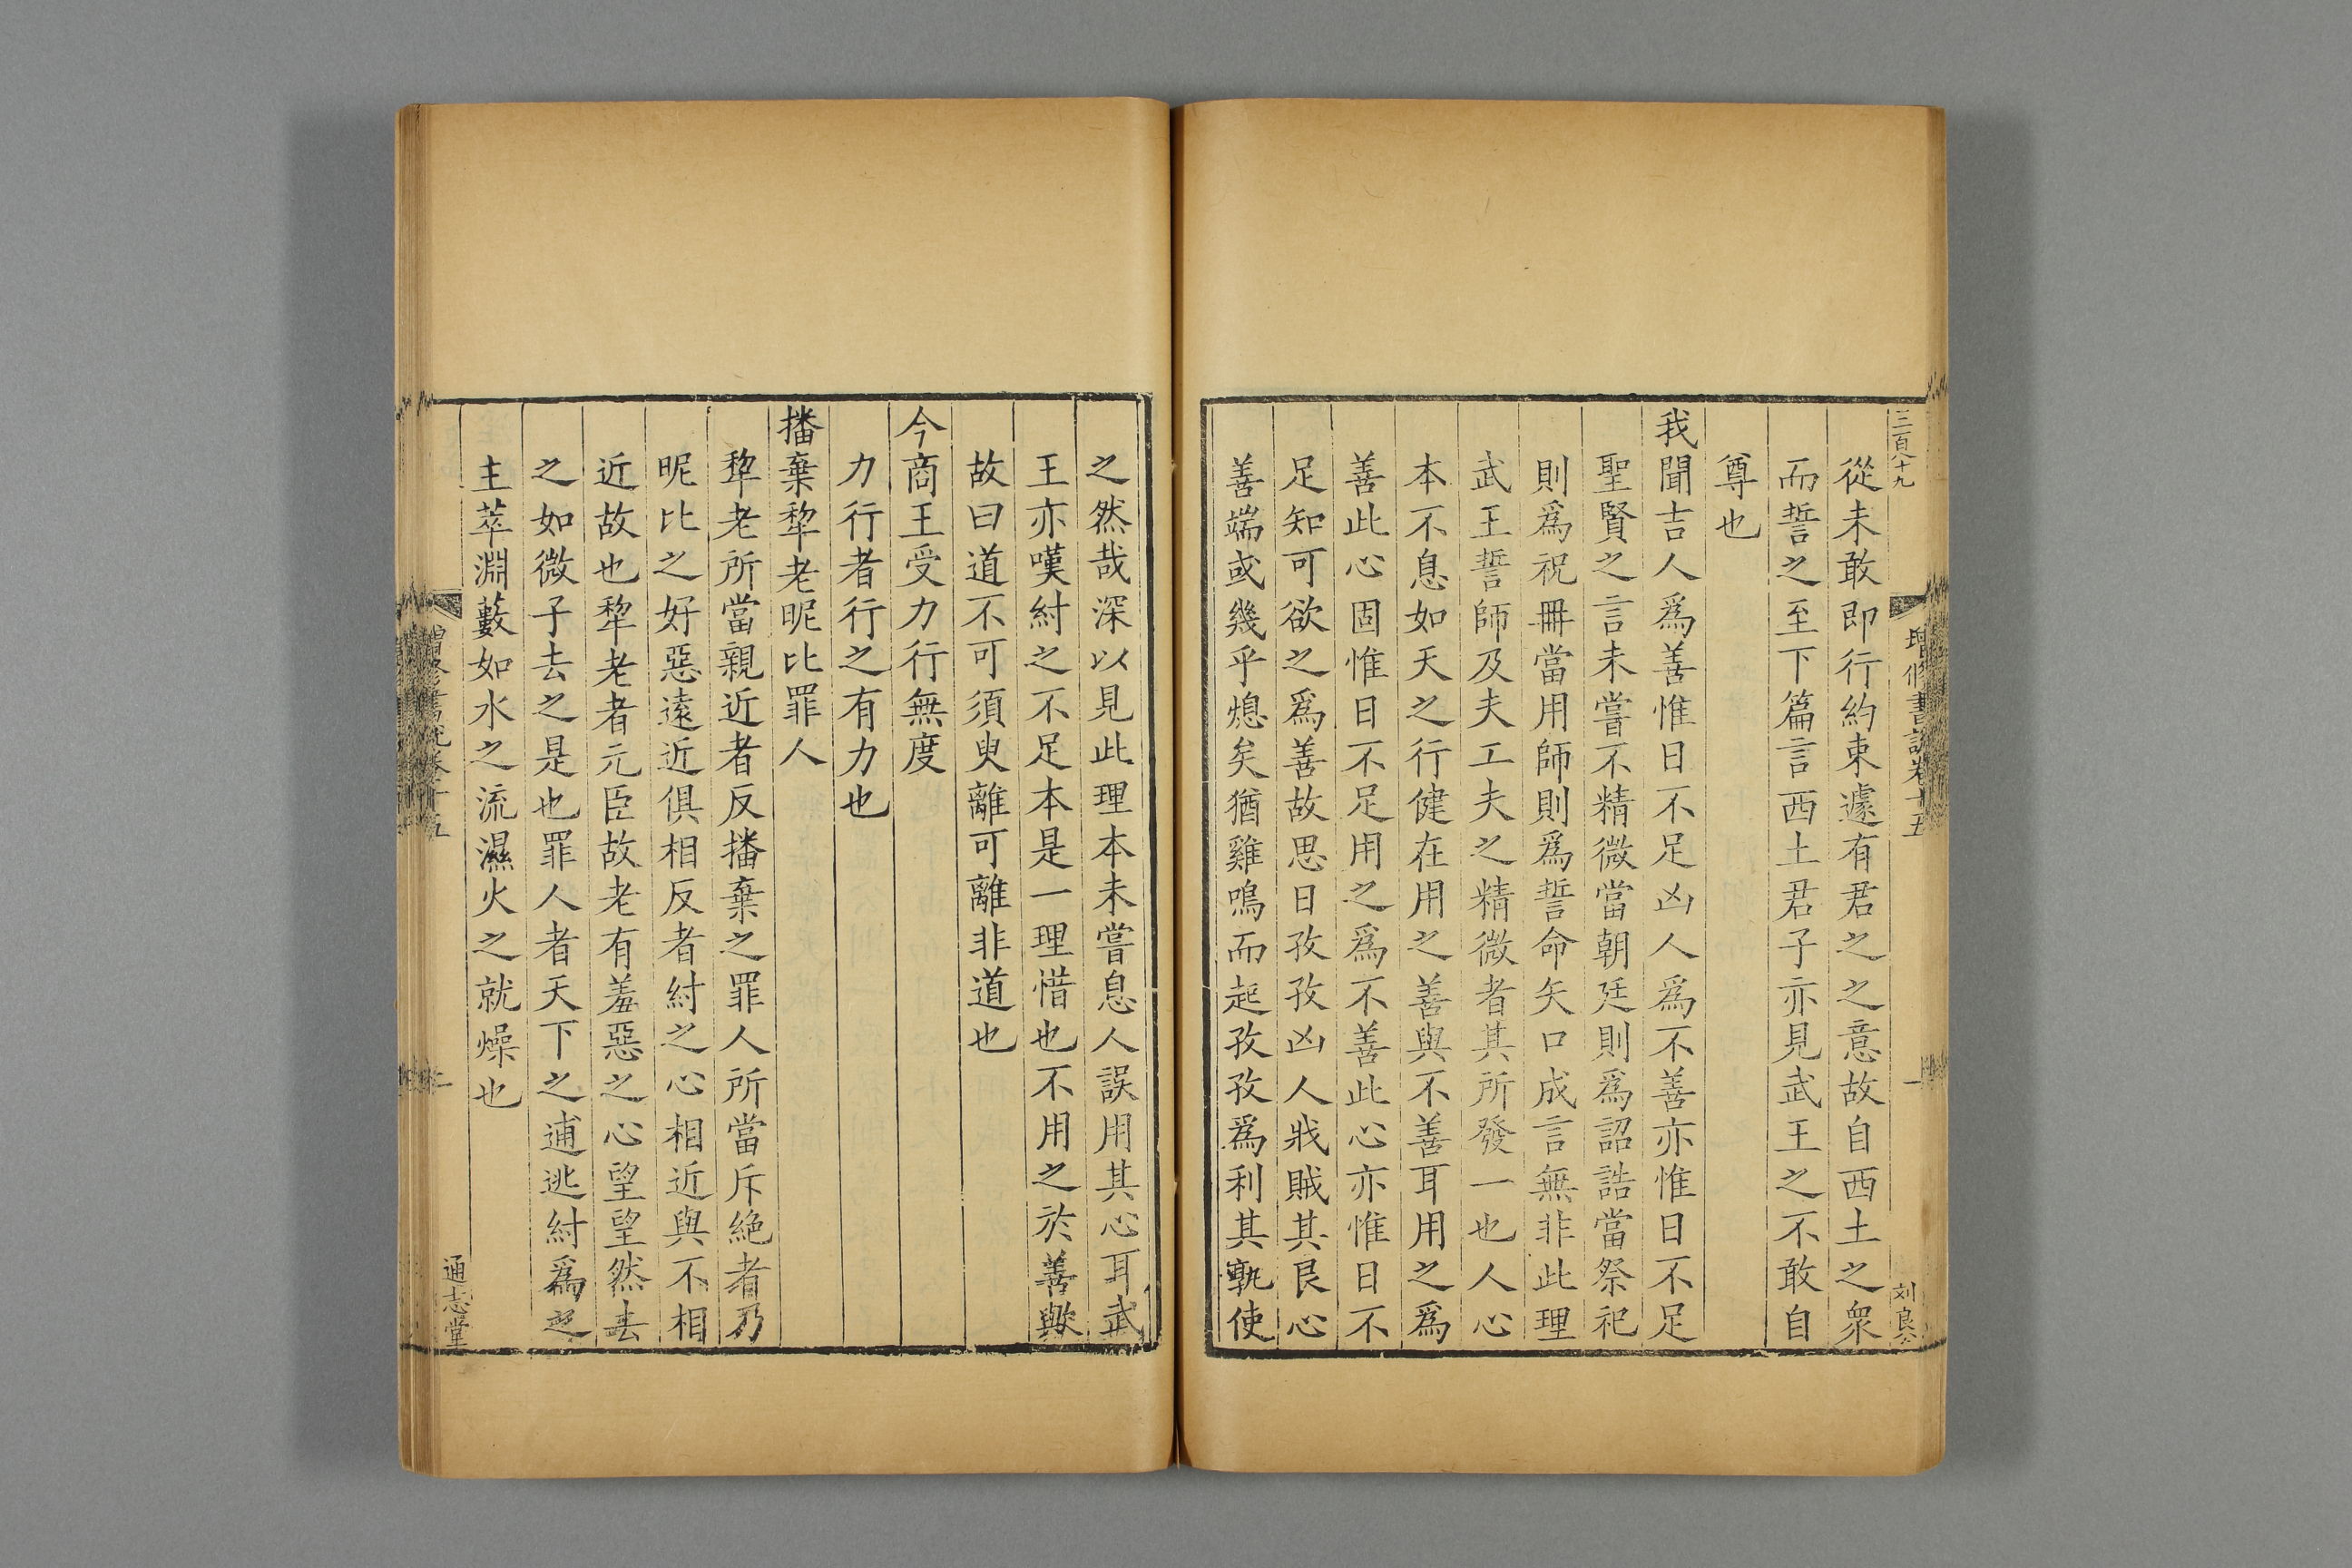 三百八十九
從未敢即行約束遽有君之之意故自西土之衆
而誓之至下篇言西土君子亦見武王之不敢自
尊也
我聞吉人爲善惟日不足凶人爲不善亦惟日不足
聖賢之言未嘗不精微當朝廷則爲詔誥當祭祀
則爲祝冊當用師則爲誓命矢口成言無非此理
武王誓師及夫工夫之精微者其所發一也人心
本不息如天之行健在用之善與不善耳用之爲
善此心固惟日不足用之爲不善此心亦惟日不
足知可欲之爲善故思日孜孜凶人戕賊其良心
善端或幾乎熄矣猶雞鳴而起孜孜爲利其孰使
增修書說卷十五
一
刘良公
之然哉深以見此理本未嘗息人誤用其心耳武
王亦嘆紂之不足本是一理惜也不用之於善歟
故曰道不可須臾離可離非道也
今商王受力行無度
力行者行之有力也
播棄犂老昵比罪人
犂老所當親近者反播棄之罪人所當斥絕者乃
昵比之好惡遠近俱相反者紂之心相近與不相
近故也犂老者元臣故老有羞惡之心望望然去
之如微子去之是也罪人者天下之逋逃紂爲之
主萃淵藪如水之流濕火之就燥也
增修書說卷十五
通志堂